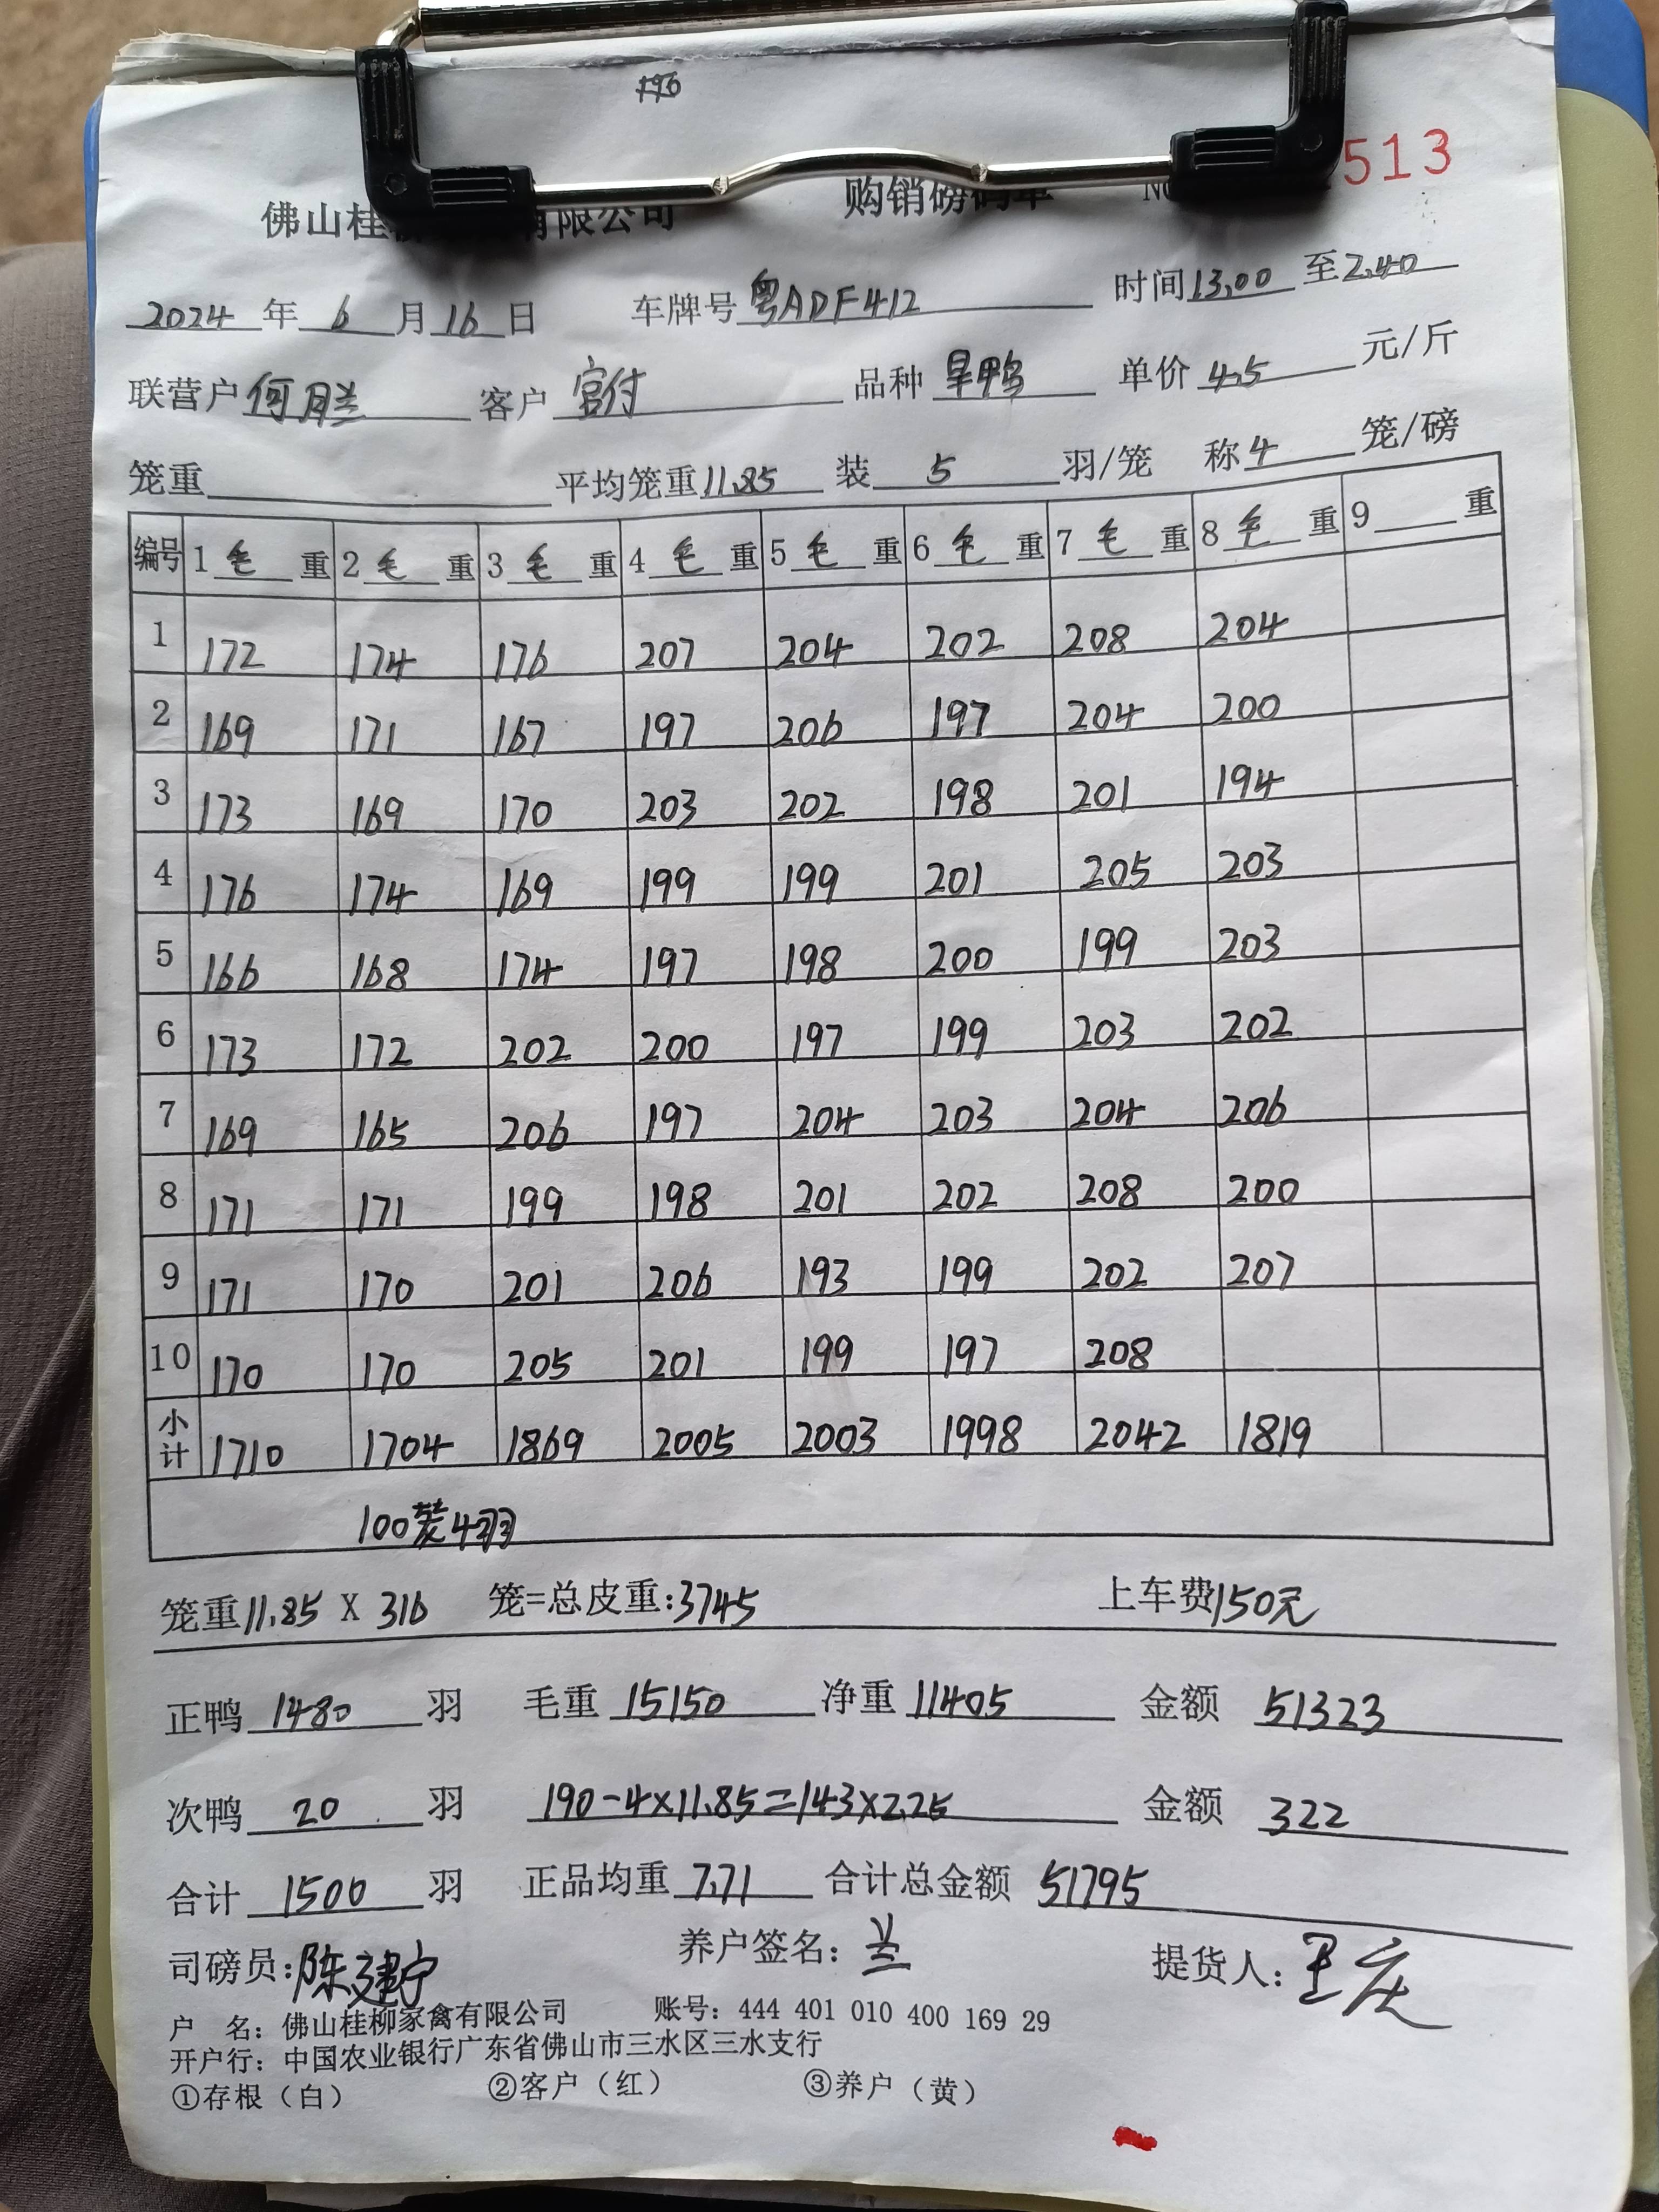 佛山桂 有限公司 购销磅码单 No 513
2024 年 6 月 16 日 车牌号 粤ADF412 时间 13.00 至 2.40
联营户 何胜兰 客户 宫付 品种 旱鸭 单价 4.5 元/斤
笼重 平均笼重 11.85 装 5 羽/笼 称 4 笼/磅
编号 1 毛 重 2 毛 重 3 毛 重 4 毛 重 5 毛 重 6 毛 重 7 毛 重 8 毛 重 9 重
1 172 174 176 207 204 202 208 204
2 169 171 167 197 206 197 204 200
3 173 169 170 203 202 198 201 194
4 176 174 169 199 199 201 205 203
5 166 168 174 197 198 200 199 203
6 173 172 202 200 197 199 203 202
7 169 165 206 197 204 203 204 206
8 171 171 199 198 201 202 208 200
9 171 170 201 206 193 199 202 207
10 170 170 205 201 199 197 208
小计 1710 1704 1869 2005 2003 1998 2042 1819
100装4羽
笼重 11.85 X 316 笼=总皮重:3745 上车费150元
正鸭 1480 羽 毛重 15150 净重 11405 金额 51323
次鸭 20 羽 190-4×11.85=143×2.25 金额 322
合计 1500 羽 正品均重 7.71 合计总金额 51795
司磅员:陈建宁 养户签名: 兰 提货人:
户 名: 佛山桂柳家禽有限公司 账号: 444 401 010 400 169 29
开户行: 中国农业银行广东省佛山市三水区三水支行
①存根（白） ②客户（红） ③养户（黄）